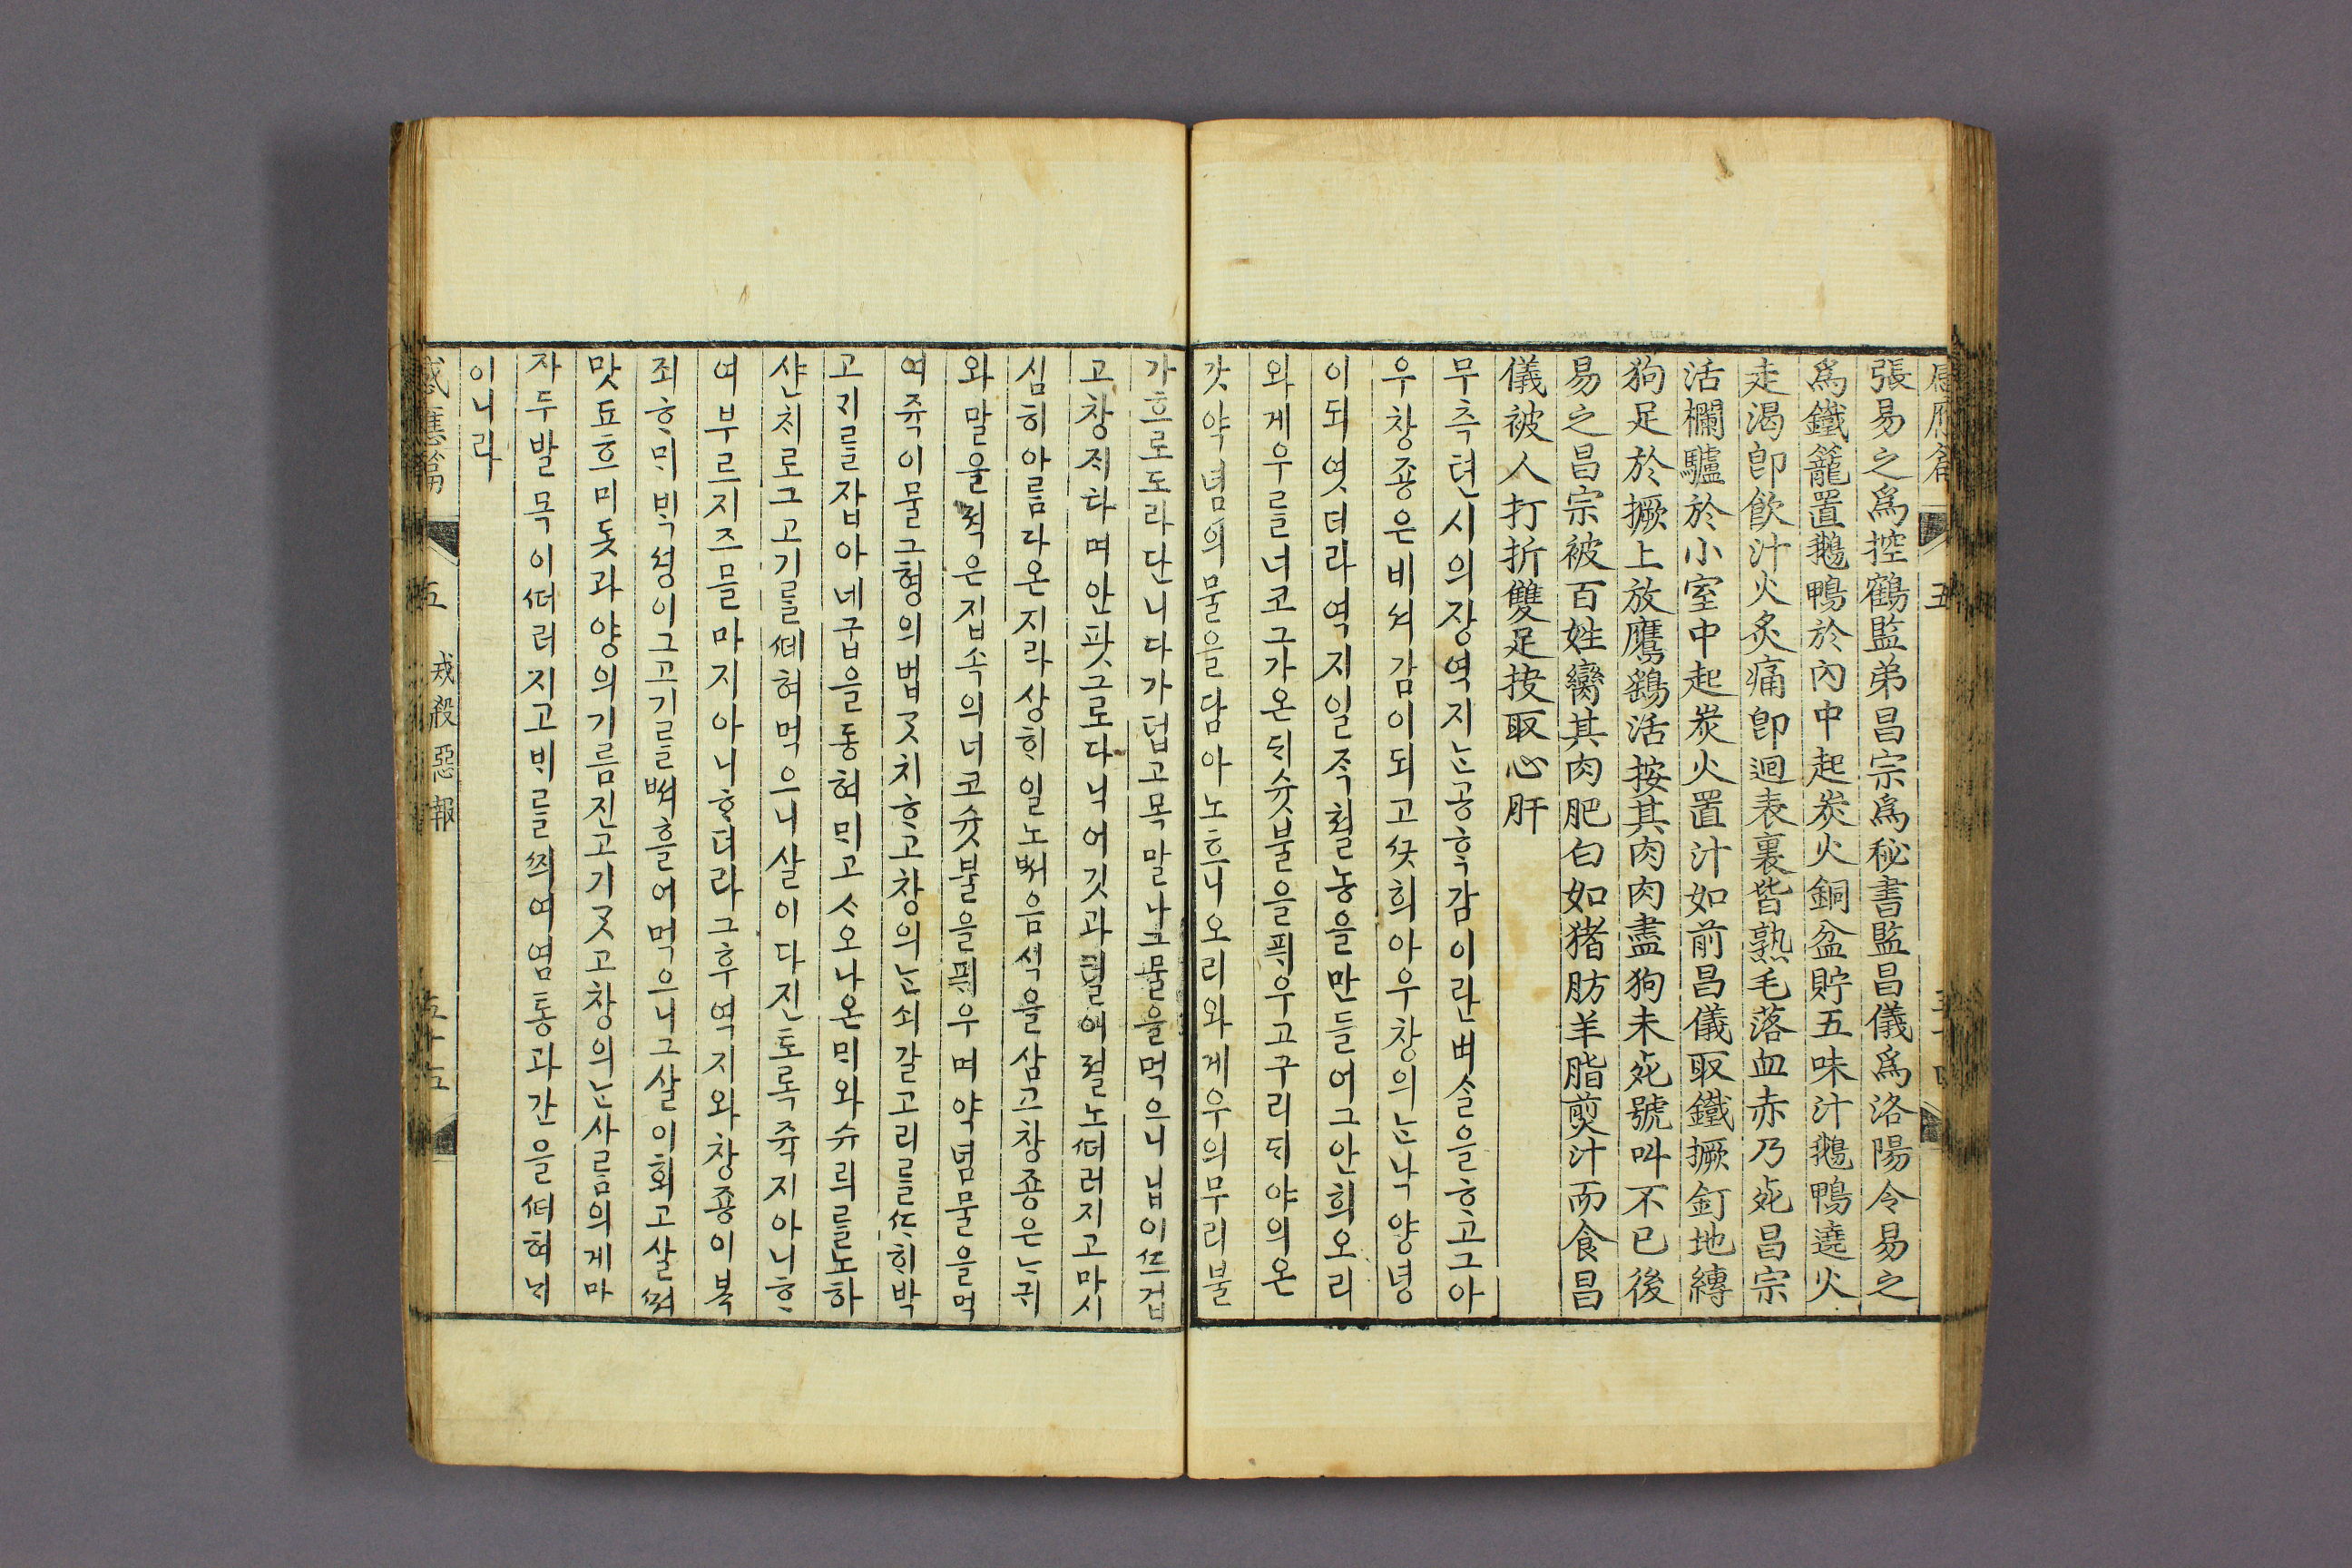 張易之爲控鶴監弟昌宗爲秘書監昌儀爲洛陽令易之
爲鐵籠置鵝鴨於內中起炭火銅盆貯五味汁鵝鴨遶火
走渴卽飮汁火炙痛卽迴表裏皆熟毛落血赤乃死昌宗
活欄驢於小室中起炭火置汁如前昌儀取鐵橛釘地縛
狗足於橛上放鷹鷂活按其肉肉盡狗未死號叫不已後
易之昌宗被百姓臠其肉肥白如猪肪羊脂煎汁而食昌
儀被人打折雙足抉取心肝
무측텬시의쟝역지ᄂᆞᆫ공ᄒᆞᆨ감이란벼ᄉᆞᆯ을ᄒᆞ고그아
우창죵은비셔감이되고ᄯᅩᆺ희아우창의ᄂᆞᆫ낙양녕
이되엿더라역지일즉쳘농을만들어그안희오리
와게우를너코그가온ᄃᆡ슛불을픠우고구리ᄃᆡ야의온
갓약념의물을담아노흐니오리와게우의무리불
가흐로도라단니다가덥고목말나그물을먹으니닙이ᄯᅳ겁
고창ᄌᆡ타며안팟그로다닉어깃과털이졀노ᄯᅥ러지고마시
심히아름다온지라상ᄒᆡ일노ᄡᅥ음식을삼고창죵은나귀
와말을젹은집속의너코슛불을픠우며약념물을먹
여쥭이물그형의법ᄀᆞᆺ치ᄒᆞ고창의ᄂᆞᆫ쇠갈고리를ᄯᅡ희박
고기를잡아네굽을동혀ᄆᆡ고ᄉᆞ오나온ᄆᆡ와슈리를노하
샨치로그고기를ᄯᅳ더먹으니살이다진토록쥭지아니ᄒᆞ
여부르지즈믈마지아니ᄒᆞ더라그후역지와창죵이복
죄ᄒᆞᄆᆡᄇᆡᆨ셩이그고기를ᄡᅥ흘어먹으니그살이희고살져
맛됴흐미돗과양의기름진고기ᄀᆞᆺ고창의ᄂᆞᆫ사ᄅᆞᆷ의게마
자두발목이ᄯᅥ러지고ᄇᆡ를ᄶᅴ여염통과간을ᄯᅥ혀ᄂᆡ
이니라
感應篇 五 戒殺惡報 五十五